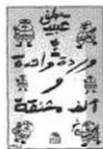 سهيل
عيب
وردة واحدة
و
ألف مشنقة